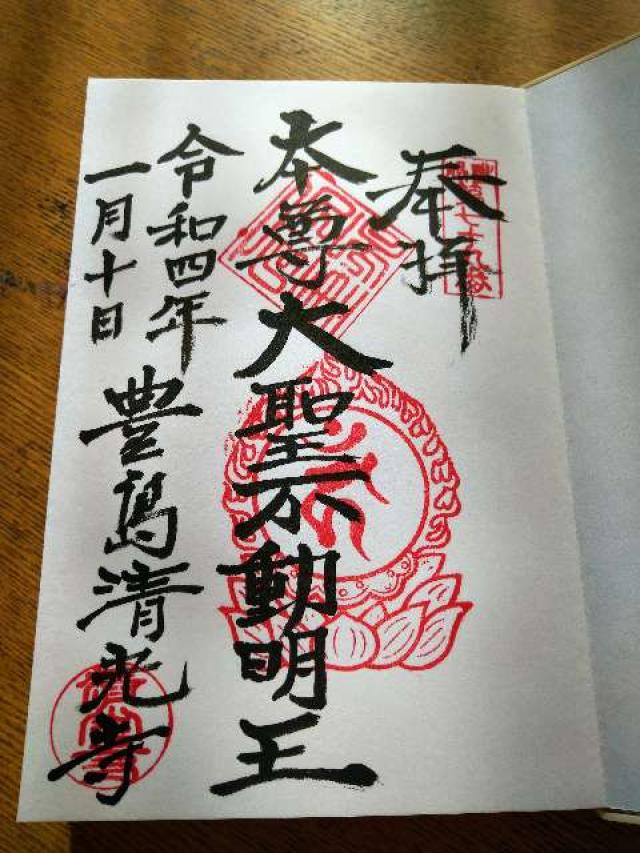 奉拝
本尊大聖不動明王
令和四年
一月十日
豊島清光寺